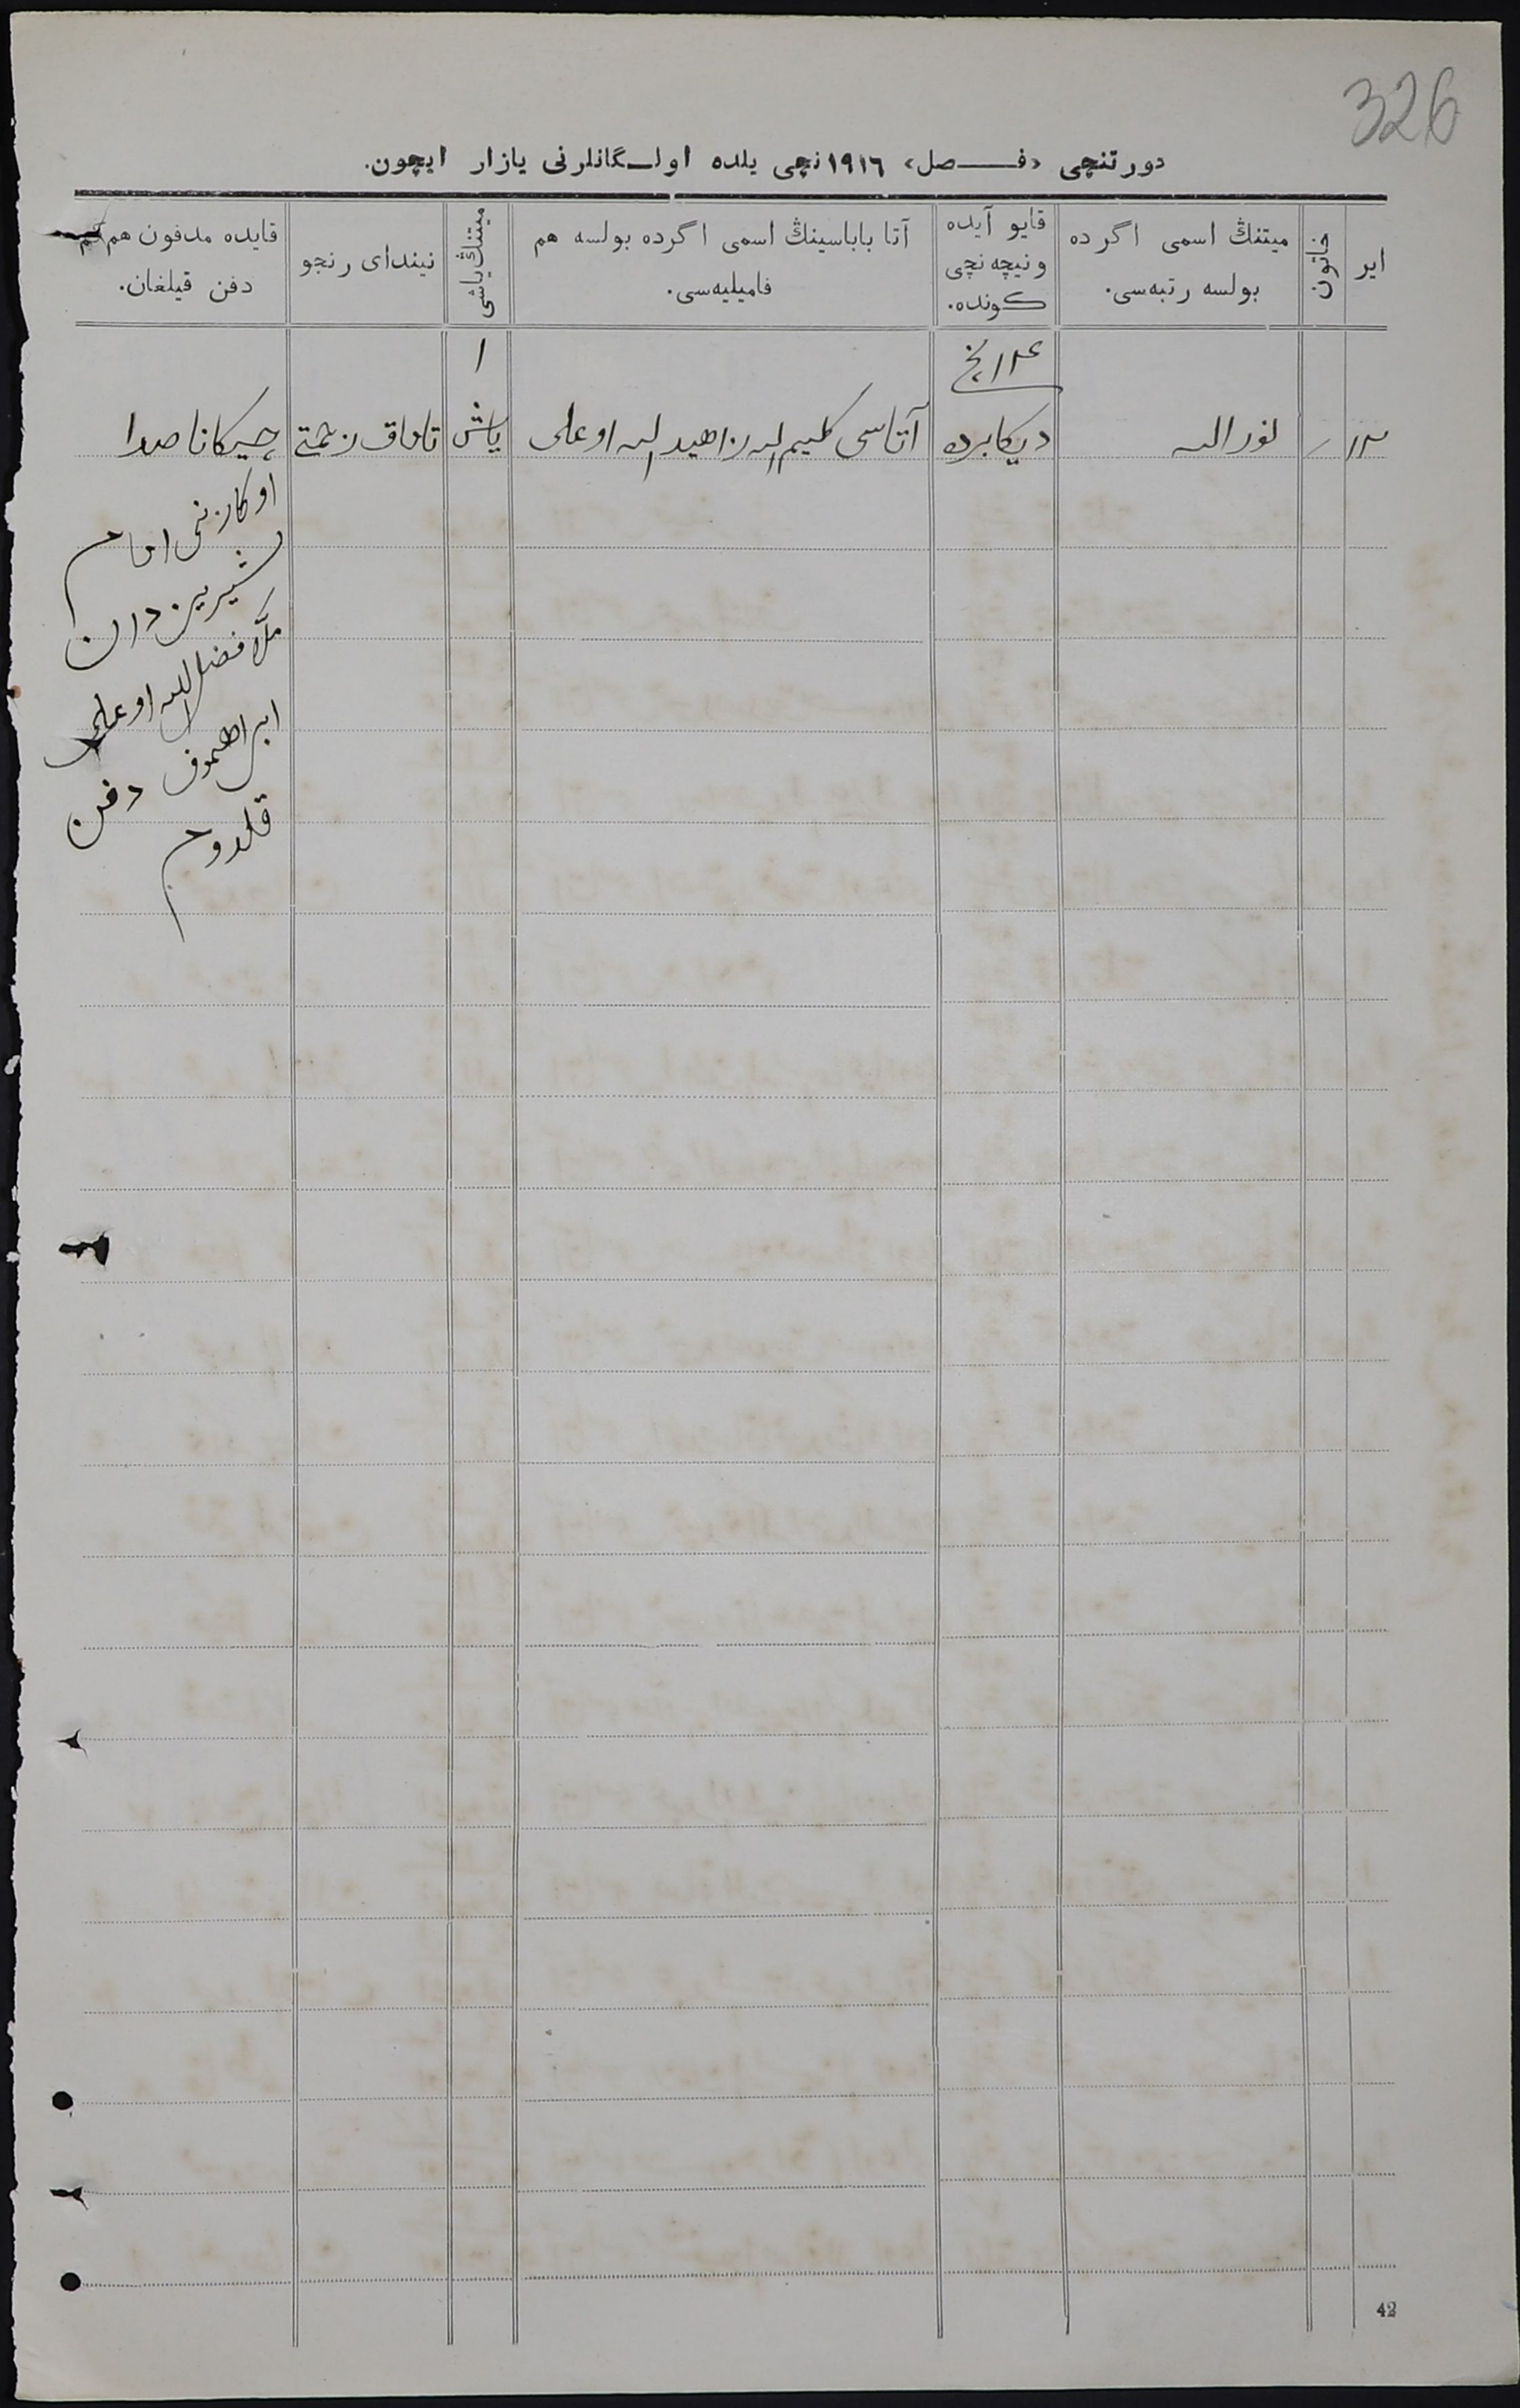 326
دورتنچی «فـــصل» ١٩١٦نچی یلده اولـگانلرنی یازار ایچون.
ایر
خاتون
میتنڭ اسمی اگرده
بولسه رتبه‌سی.
قایو آیده
ونیچه نچی
کونده.
آتا باباسینڭ اسمی اگرده بولسه هم
فامیلیه‌سی.
میتنڭ یاشی
نیندای رنجو
قایده مدفون هم کم
دفن قیلغان.
نورالله
دیکابرده
آتاسی کلیم الله زاهید الله اوغلی
١
یاش
تاماق زحمتی
اوکازنی امام
شیریزدان
ملا فضل الله اوغلی
ابراهیموف دفن
قلدوم
42